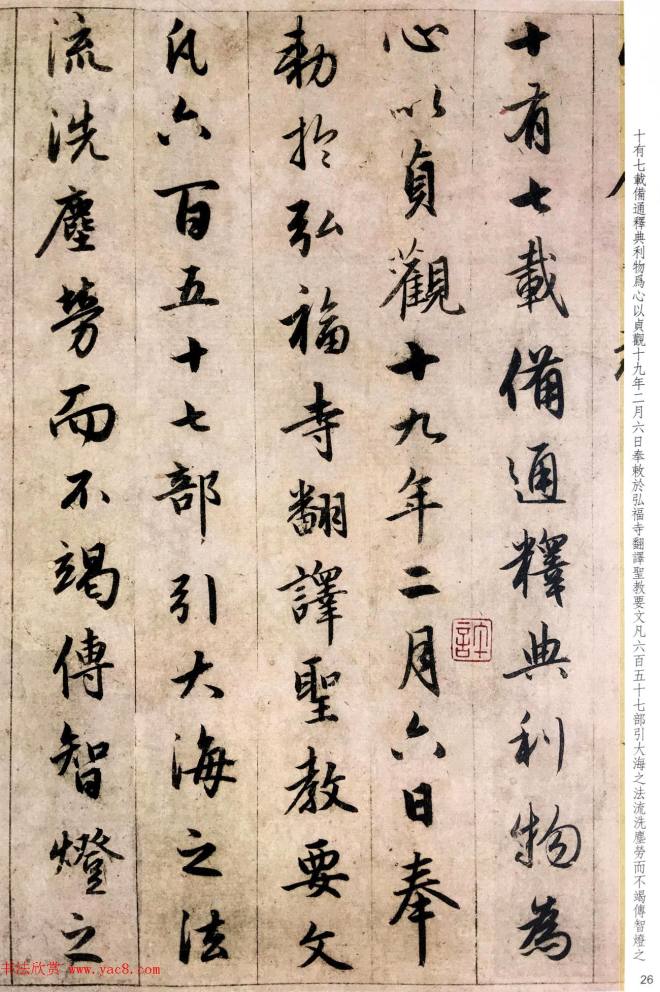 十有七載備通釋典利物為
心以貞觀十九年二月六日奉
勅於弘福寺翻譯聖教要文
凡六百五十七部引大海之法
流洗塵勞而不竭傳智燈之
十有七載備通釋典利物爲心以貞觀十九年二月六日奉敕於弘福寺翻譯聖教要文凡六百五十七部引大海之法流洗塵勞而不竭傳智燈之
26
书法欣赏 www.yac8.com